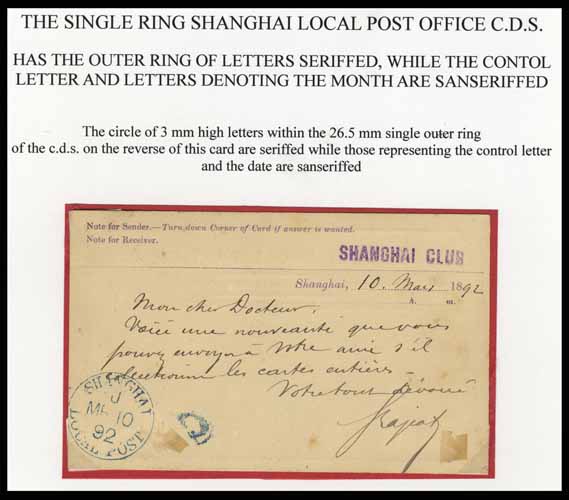 THE SINGLE RING SHANGHAI LOCAL POST OFFICE C.D.S.
HAS THE OUTER RING OF LETTERS SERIFFED, WHILE THE CONTOL
LETTER AND LETTERS DENOTING THE MONTH ARE SANSERIFFED
The circle of 3 mm high letters within the 26.5 mm single outer ring
of the c.d.s. on the reverse of this card are seriffed while those representing the control letter
and the date are sanseriffed
Note for Sender.—Turn down Corner of Card if answer is wanted.
Note for Receiver.
SHANGHAI CLUB
Shanghai, 10. Mars 1892
A. m.
Mon cher Docteur,
Voici une nouveauté que vous
pouvez envoyer à votre ami s'il
collectionne les cartes entières.
Votre tout dévoué
SHANGHAI
J
MR 10
92
LOCAL POST